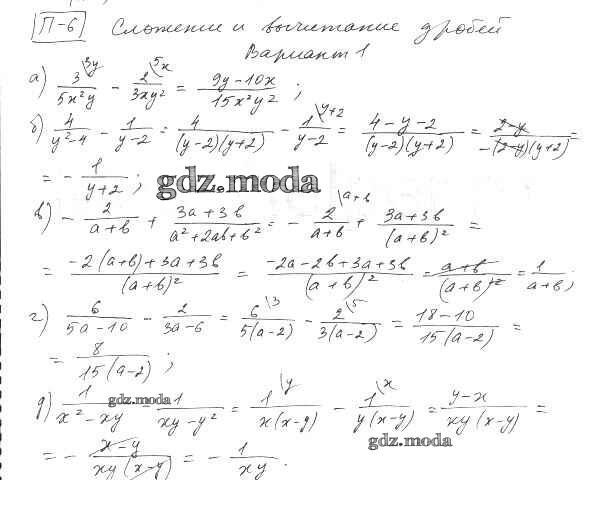 П-6 Сложение и вычитание дробей
Вариант 1
а) 3\3y/5x²y - 2\5x/3xy² = 9y-10x/15x²y²;
б) 4/y²-4 - 1/y-2 = 4/(y-2)(y+2) - 1\y+2/y-2 = 4-y-2/(y-2)(y+2) = 2-y/-(2-y)(y+2) =
= - 1/y+2;
gdz.moda
в) - 2/a+b + 3a+3b/a²+2ab+b² = - 2\a+b/a+b + 3a+3b/(a+b)² =
= -2(a+b)+3a+3b/(a+b)² = -2a-2b+3a+3b/(a+b)² = a+b/(a+b)² = 1/a+b;
г) 6/5a-10 - 2/3a-6 = 6\3/5(a-2) - 2\5/3(a-2) = 18-10/15(a-2) =
= 8/15(a-2);
д) 1/x²-xy - 1/xy-y² = 1\y/x(x-y) - 1\x/y(x-y) = y-x/xy(x-y) =
gdz.moda
gdz.moda
= - x-y/xy(x-y) = - 1/xy.